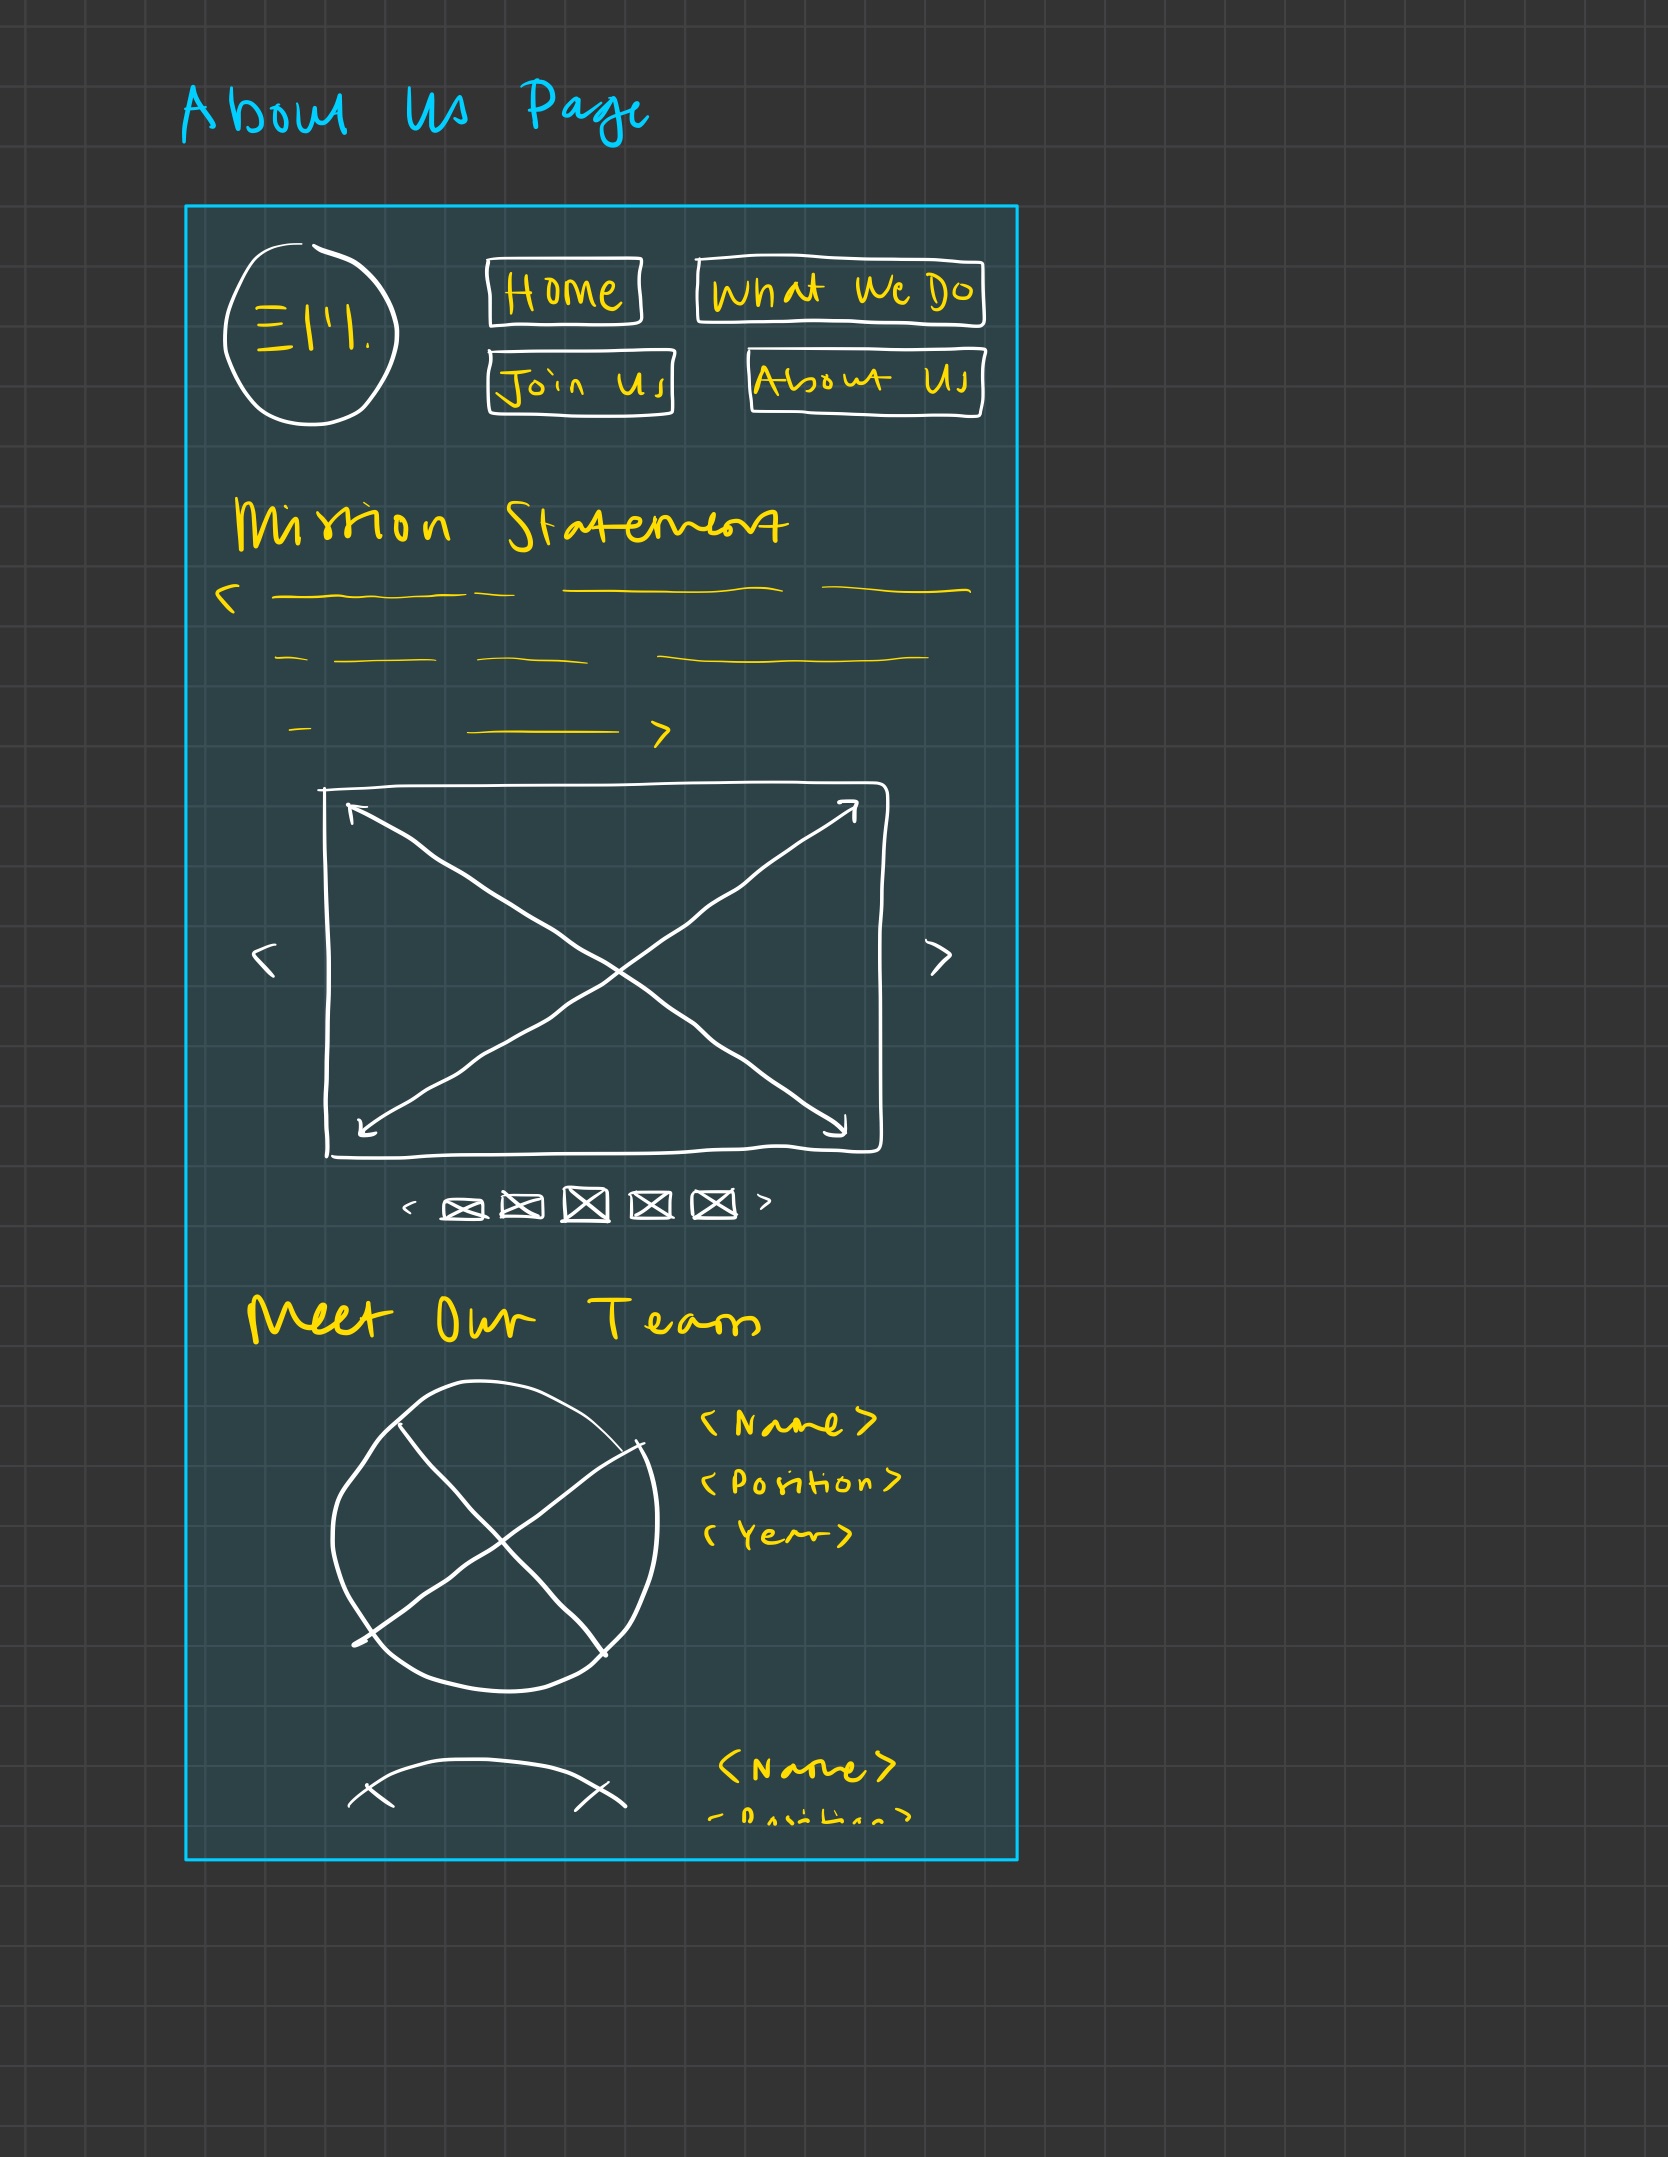 About Us Page
Home What We Do
Join Us About Us
Mission Statement
Meet Our Team
<Name>
<Position>
<Year>
<Name>